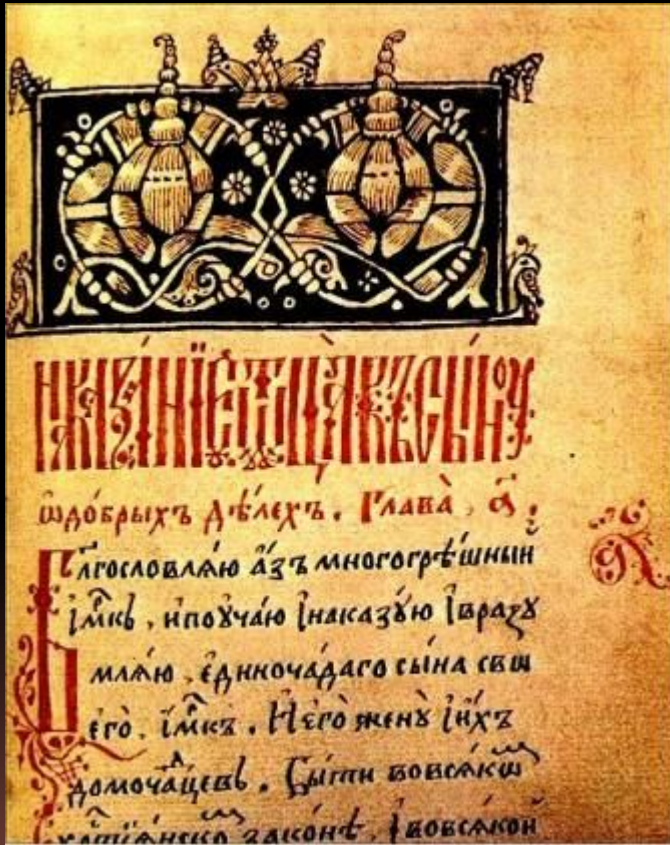 Наказанїе ѿ ѻтца̀ къ сы́нꙋ
ѡдо́брыхъ дѣ́лехъ. Глава̀, а҃.
а҃
Блгословлѧ́ю а҆́зъ многогрѣ́шныи
і҆м҃къ, ипоꙋча́ю і҆наказꙋ́ю і҆вразꙋ
млѧ́ю, единоча́даго сы́на сво
его̀, і҆м҃къ. И҆его̀ женꙋ̀ і҆и́хъ
домоча́дцевъ. Бы́ти вовсѧ́ко
хрⷭ҇тиѧ́нско зако́нѣ, і҆вовсѧ́кои